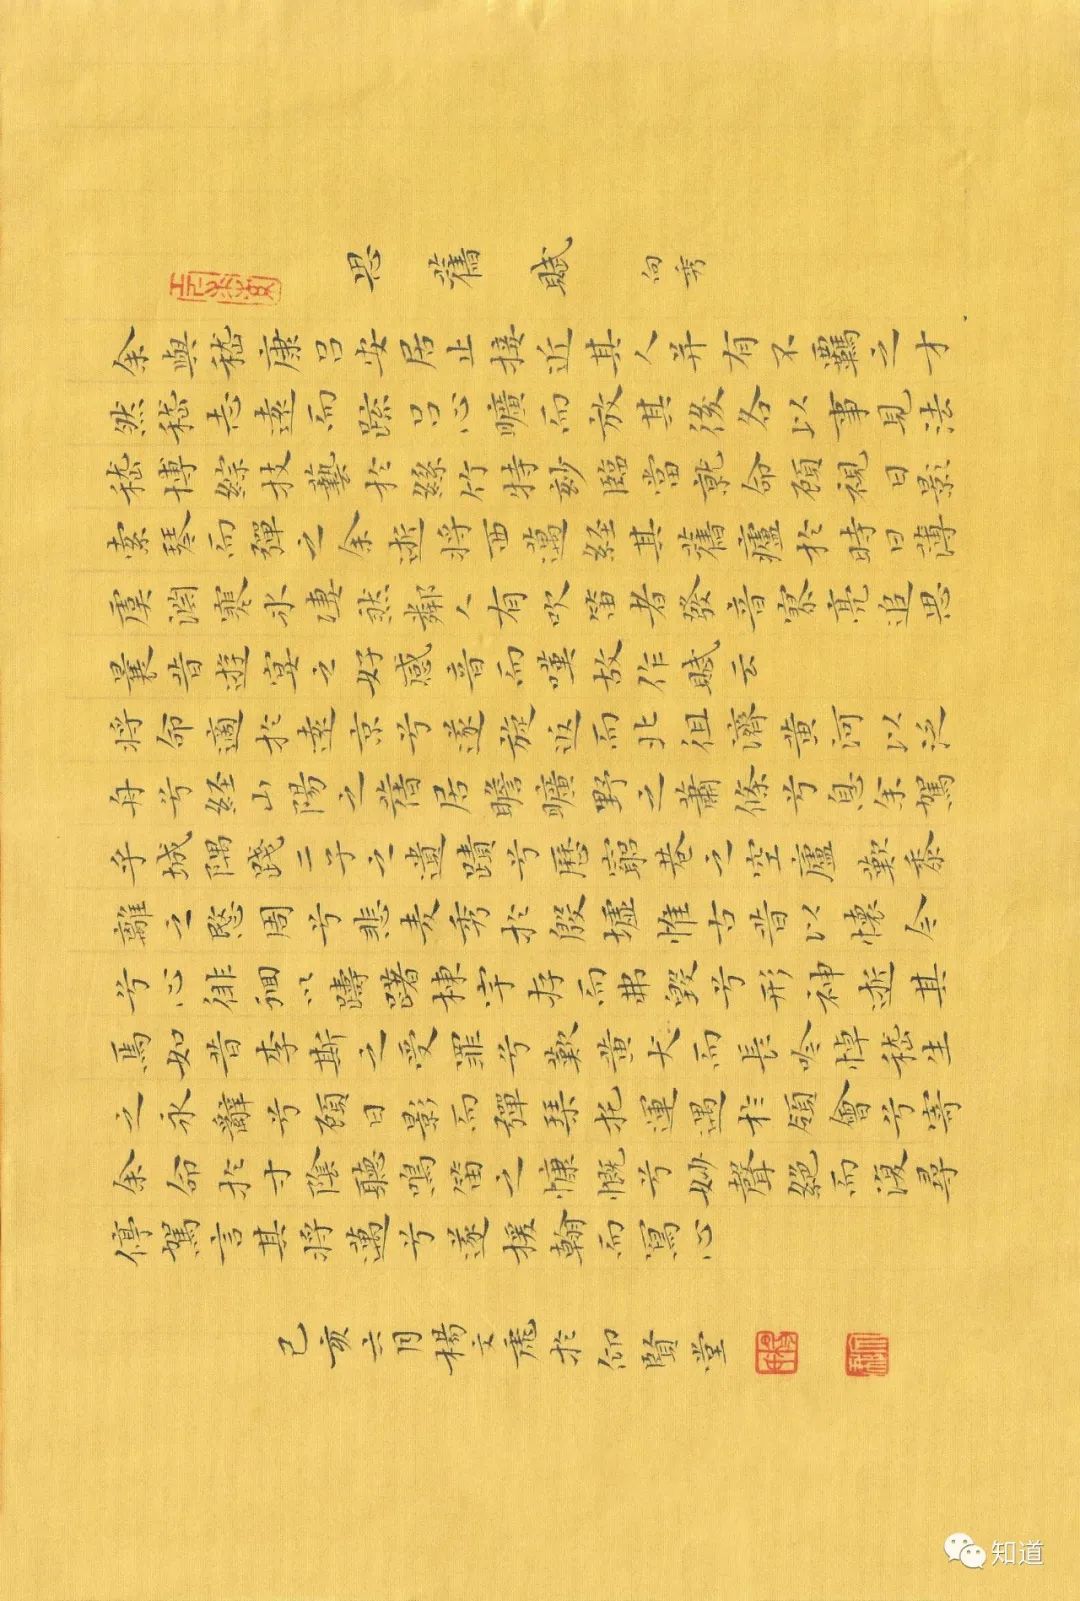 思舊賦 向秀
余與嵇康呂安居止接近其人并有不羈之才
然嵇志遠而踈呂心曠而放其後各以事見法
嵇博綜技藝於絲竹特妙臨當就命顧視日影
索琴而彈之余逝將西邁経其舊廬於時日薄
虞淵寒氷凄然鄰人有吹笛者發音寥亮追思
曩昔遊宴之好感音而嘆故作賦云
將命適於遠京兮遂旋返而北徂濟黃河以泛
舟兮経山陽之舊居瞻曠野之蕭條兮息余駕
乎城隅踐二子之遺蹟兮歷窮巷之空廬歎黍
離之愍周兮悲麦秀於殷墟惟古昔以懷今
兮心徘徊以躊躇棟宇存而弗毀兮形神逝其
焉如昔李斯之受罪兮歎黃犬而長吟悼嵇生
之永辭兮顧日影而彈琴托運遇於領會兮寄
余命於寸陰聽鳴笛之慷慨兮妙聲絕而復尋
停駕言其將邁兮遂援翰而寫心
己亥六月楊文虎於仰賢堂
知道